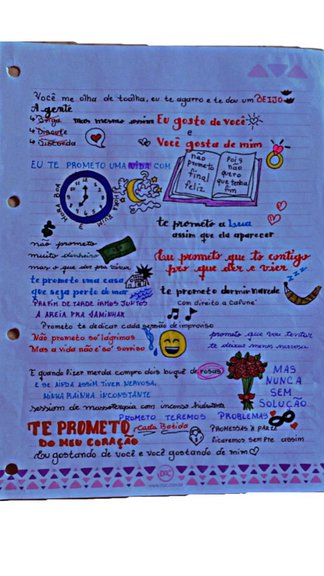 Você me olha de toalha, eu te agarro e te dou um BEIJO
A gente
↳ Briga mas mesmo assim Eu gosto de você
↳ Discute e
↳ Discorda Você gosta de mim
EU TE PROMETO UMA VIDA COM
HORA BOA
HORA RUIM
não
prometo
final
feliz
Pois
não
quero
que tenha
fim
te prometo a Lua
assim que ela aparecer
não prometo
muito dinheiro
mas o que der pra viver
Eu prometo que to contigo
pro que der e vier
te prometo uma casa
que seja perto do mar
te prometo dormir na rede
com direito a cafuné
PRA FIM DE TARDE IRMOS JUNTOS
A AREIA PRA CAMINHAR
Prometo te dedicar cada sessão de improviso
Não prometo só lágrimas
Mas a vida não é só sorriso
prometo que vou tentar
te deixar menos nervosa
E quando fizer merda compro dois buquê de rosas
E SE AINDA ASSIM TIVER NERVOSA,
MINHA RAINHA INCONSTANTE
sessão de massoterapia com incenso
MAS
NUNCA
SEM
SOLUÇÃO
PROMETO TEREMOS PROBLEMAS
TE PROMETO Cada Batida
DO MEU CORAÇÃO
PROMESSAS À PARTE
ficaremos sempre assim
Eu gostando de você e você gostando de mim